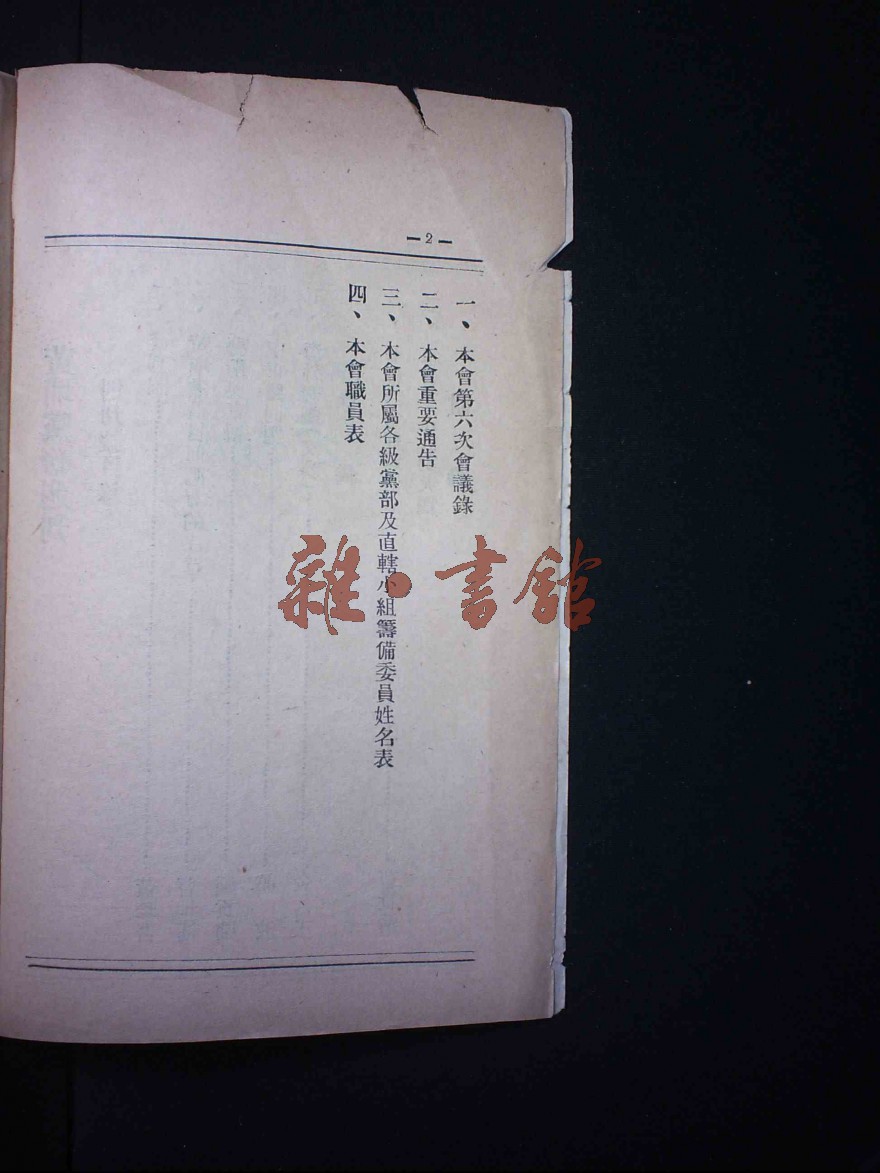 —2—
一、本會第六次會議錄
二、本會重要通告
三、本會所屬各級黨部及直轄小組籌備委員姓名表
四、本會職員表
雜·書館